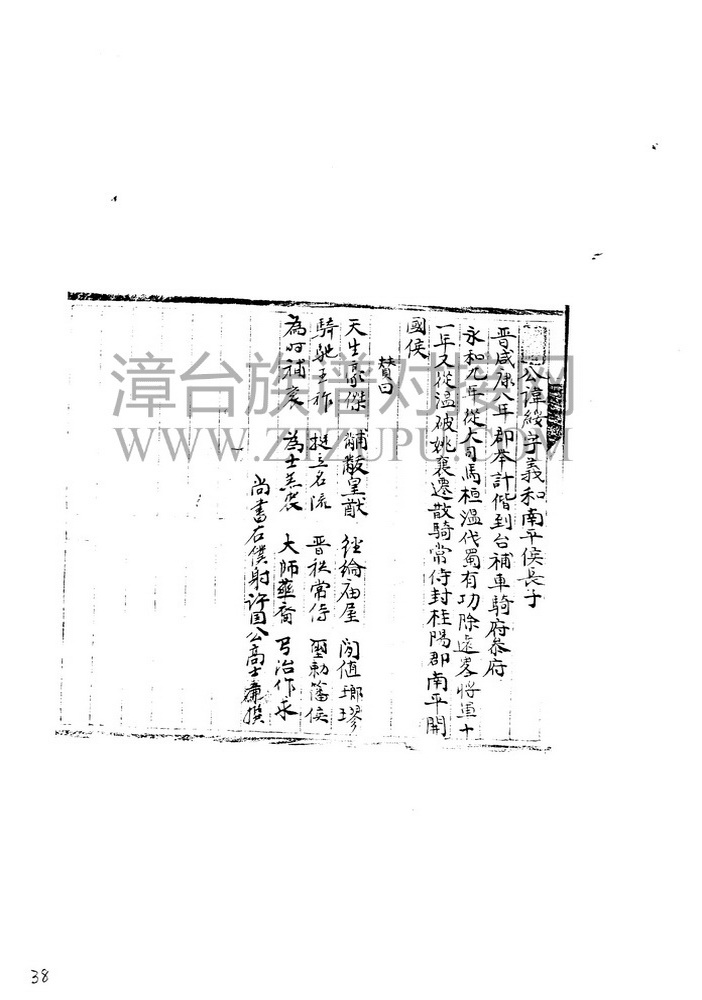 公諱綏字義和南平侯長子
晋咸康八年郡举計偕到台補車騎府叅府
永和九年從大司馬桓温伐蜀有功除遠畧將軍十
一年又從温破姚襄遷散騎常侍封桂陽郡南平開
國侯
贊曰
天生豪傑 黼黻皇猷 經綸 屋 值瑯璆
騎馳王祚 挺立名流 晋秩常侍 璽勅藩侯
為 補袞 為士羔裘 大師華裔 弓冶作求
尚書右僕射許国公高士亷撰
漳台族谱对接网
WWW.ZTZUPU.COM
38